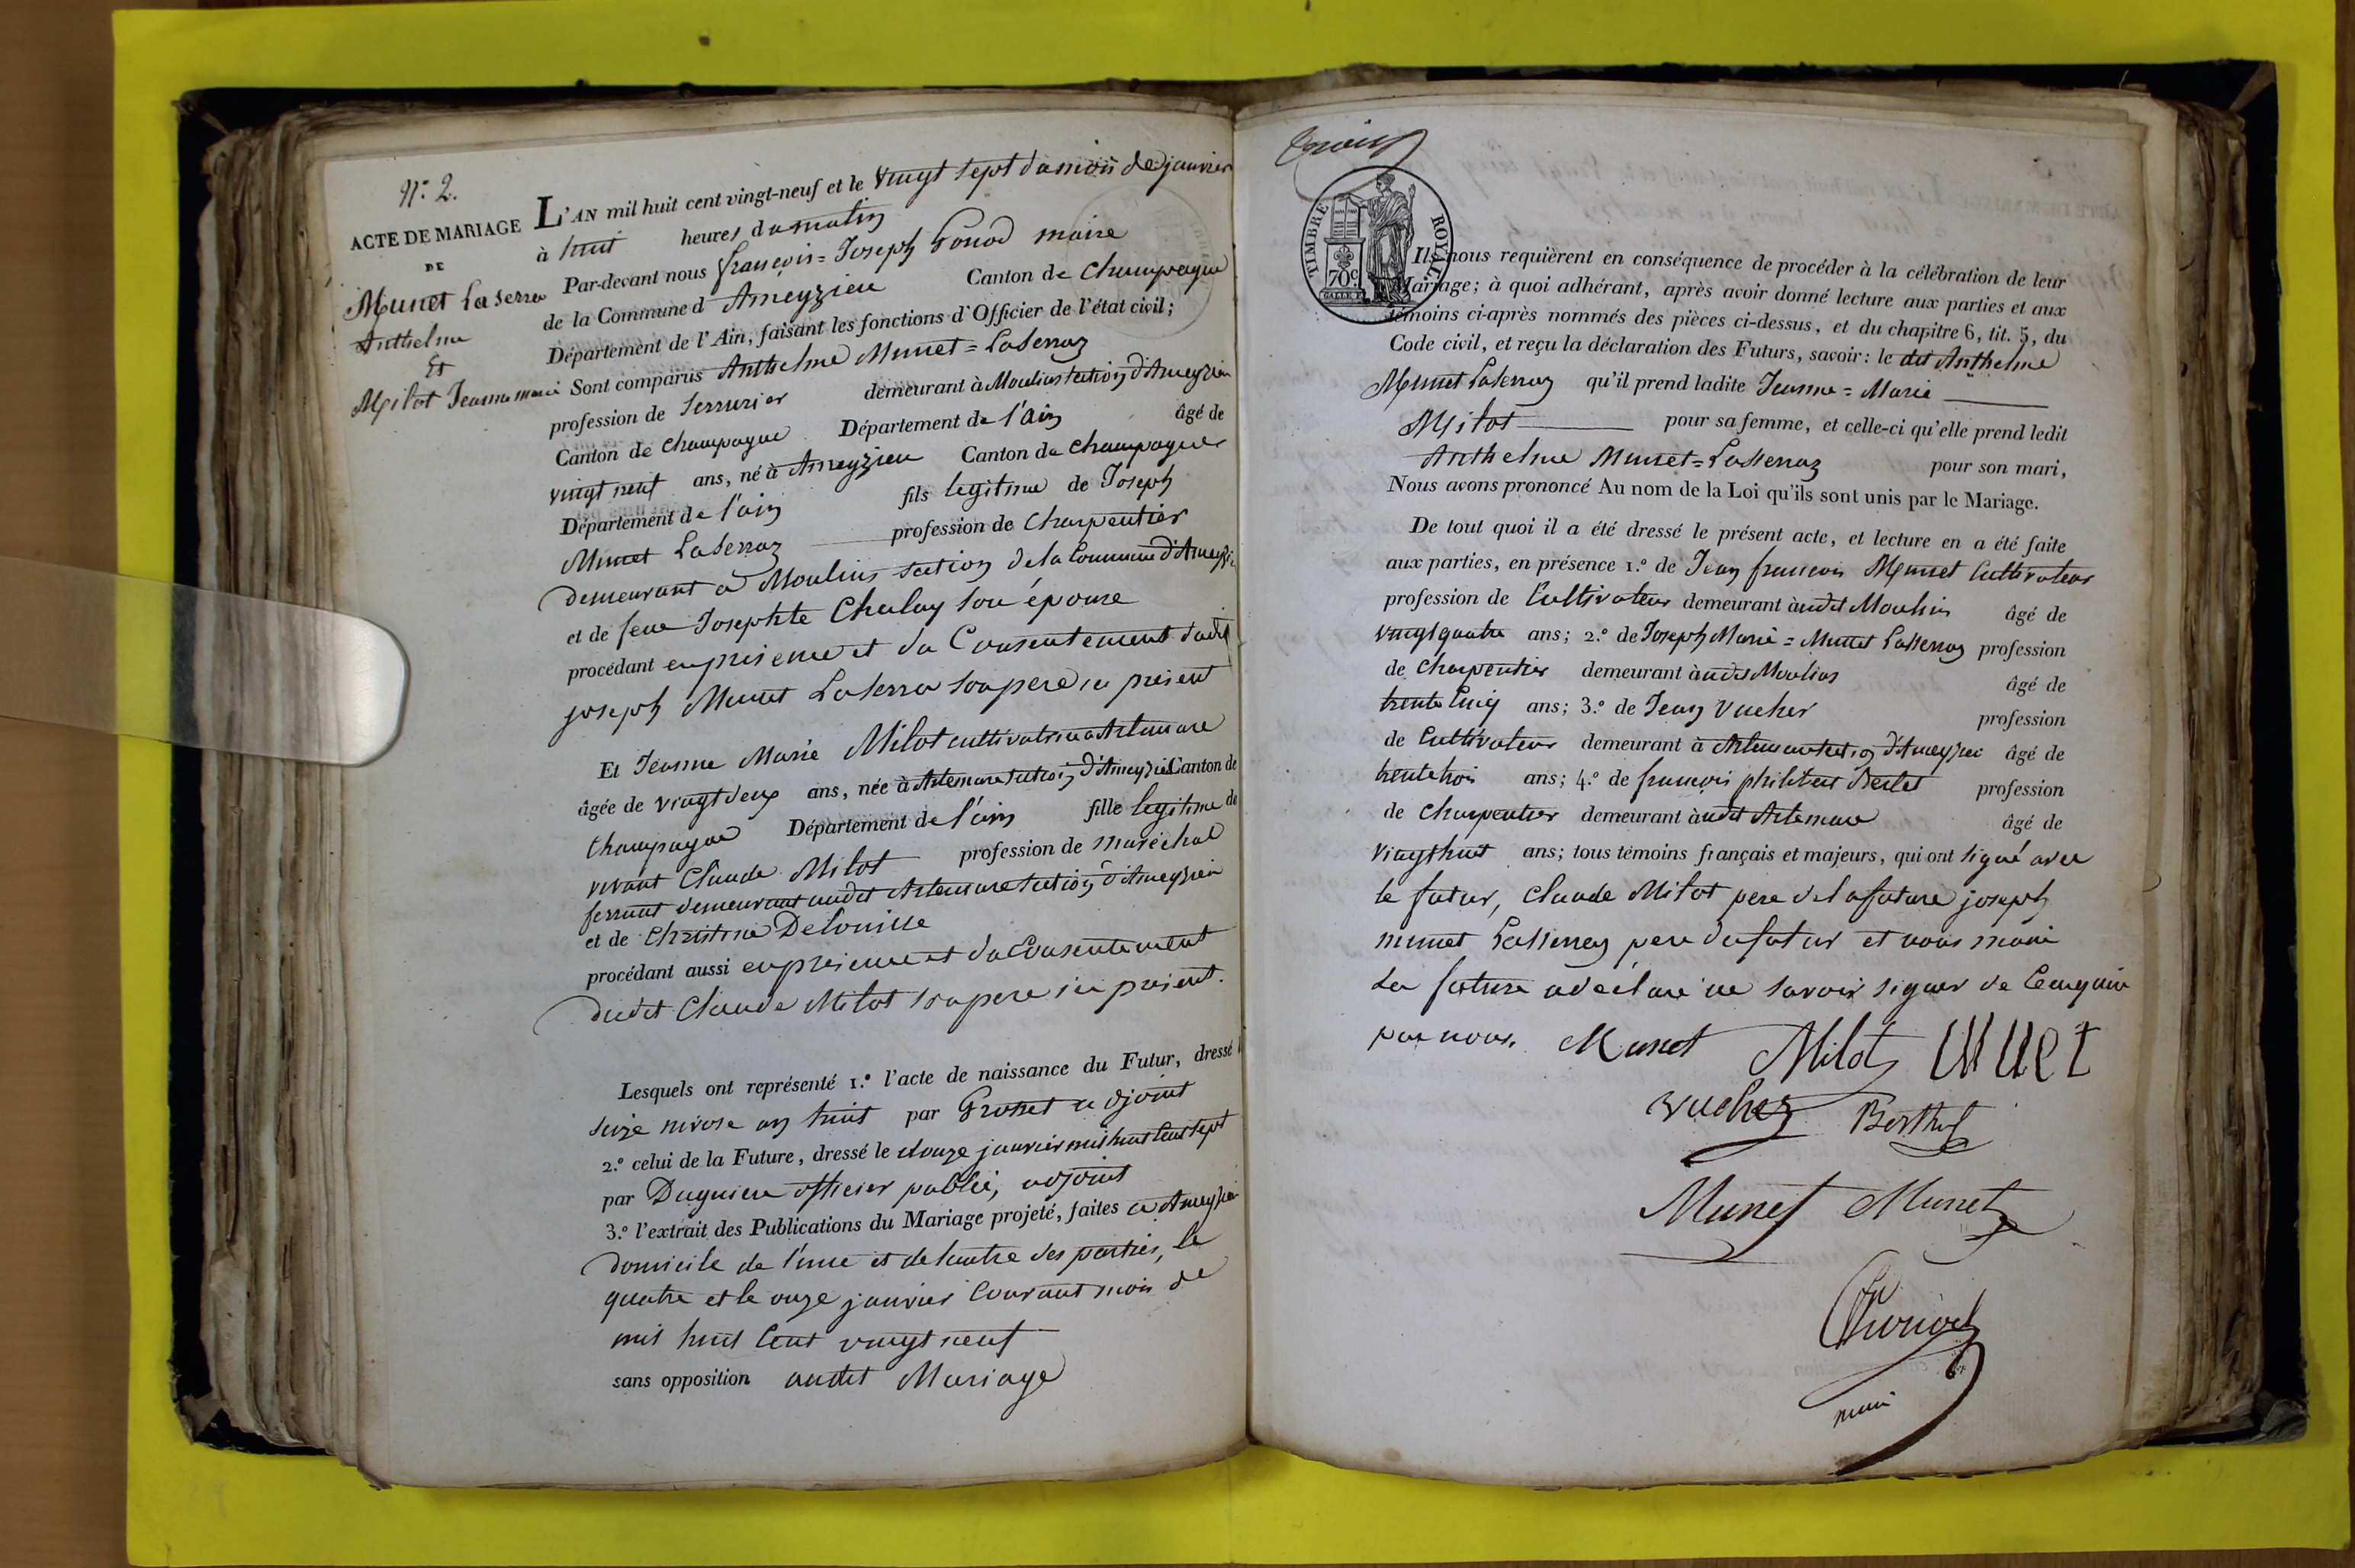 N.° 2.
ACTE DE MARIAGE
DE
Munet Laserra
Anthelme
Et
Milot Jeanne marie
L'AN mil huit cent vingt-neuf et le vingt sept du mois de janvier
à huit heures du matin
Par-devant nous françois = Joseph Gonod maire
de la Commune d'Ameyzieu Canton de Champagne
Département de l'Ain, faisant les fonctions d'Officier de l'état civil;
Sont comparus Anthelme Munet = Laserraz
profession de Serrurier demeurant à Moulins section d'Ameyzieu
Canton de Champagne Département de l'Ain âgé de
vingt neuf ans, né à Ameyzieu Canton de Champagne
Département de l'ain fils legitime de Joseph
Munet Laserraz profession de Charpentier
demeurant à Moulins section de la Commune d'Ameyzieu
et de feue Josephte Chaley son épouse
procédant en presence et du Consentement dudit
joseph Munet Laserra son pere ici présent
Et Jeanne Marie Milot cultivatrice a Artemare
âgée de vingt deux ans, née à Artemare section d'Ameyzieu Canton de
Champagne Département de l'ain fille legitime de
vivant Claude Milot profession de maréchal
ferrant demeurant audit Artemare section d'Ameyzieu
et de Christine Delouille
procédant aussi en présence et du Consentement
dudit Claude Milot son pere ici présent.
Lesquels ont représenté 1.° l'acte de naissance du Futur, dressé
seize nivose an huit par Grosset adjoint
2.° celui de la Future, dressé le douze janvier mil huit cent sept
par officier public, adjoint
3.° l'extrait des Publications du Mariage projeté, faites à Ameyzieu
domicile de l'une et de l'autre des parties, le
quatre et le onze janvier Courant mois de
mil huit Cent vingt neuf
sans opposition audit Mariage
TIMBRE ROYAL.
70c
Ils nous requièrent en conséquence de procéder à la célébration de leur
Mariage; à quoi adhérant, après avoir donné lecture aux parties et aux
témoins ci-après nommés des pièces ci-dessus, et du chapitre 6, tit. 5, du
Code civil, et reçu la déclaration des Futurs, savoir: le dit Anthelme
Munet Laserraz qu'il prend ladite Jeanne = Marie
Milot pour sa femme, et celle-ci qu'elle prend ledit
Anthelme Munet = Lasserraz pour son mari,
Nous avons prononcé Au nom de la Loi qu'ils sont unis par le Mariage.
De tout quoi il a été dressé le présent acte, et lecture en a été faite
aux parties, en présence 1.° de Jean francois Munet Cultivateur
profession de Cultivateur demeurant audit Moulins âgé de
vingt quatre ans; 2.° de Joseph Marie = Munet Lasserraz profession
de Charpentier demeurant audit Moulins âgé de
trente Cinq ans; 3.° de Jean Vucher profession
de Cultivateur demeurant à Artemare section d'Ameyzieu âgé de
trente trois ans; 4.° de françois philibert profession
de Charpentier demeurant audit Artemare âgé de
vingt huit ans; tous témoins français et majeurs, qui ont signé avec
le futur, Claude Milot pere de la future joseph
munet Lasserraz pere du futur et nous maire
La future a déclaré ne savoir signer de Ce enquise
par nous. Munet Milot Munet
vucher Berthet
Munet Munet
Gonod
maire